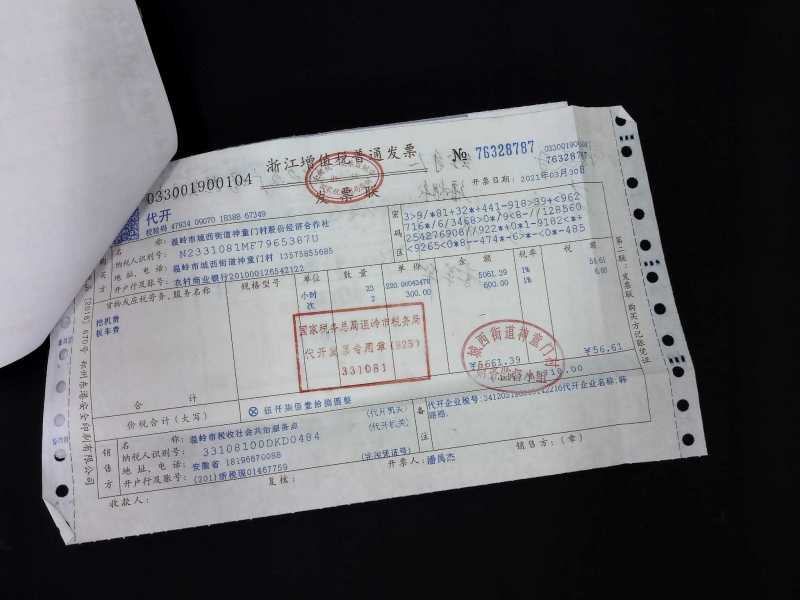 浙江增值税普通发票
发票联
033001900104
No 76328787
033001900104
76328787
开票日期：2021年03月30日
代开
校验码 47934 09070 18388 67349
购买方
名称：温岭市城西街道神童门村股份经济合作社
纳税人识别号：N2331081MF7965387U
地址、电话：温岭市城西街道神童门村 13575885685
开户行及账号：农村商业银行201000126542122
密码区
3>9/*81+32*+441-918>39+<962
716*/6/3468>0*/9<8-//128560
254276908//922*+0*1-9182<*+
<9265<0*8--474*-6>*-<0*-485
货物或应税劳务、服务名称
规格型号
单位
数量
单价
金额
税率
税额
挖机费
小时
23
5061.39
1%
板车费
次
2
300.00
600.00
1%
国家税务总局温岭市税务局
代开发票专用章(825)
331081
城西街道神童门村
合计
¥5661.39
¥56.61
价税合计（大写）
伍仟柒佰壹拾捌圆整
销售方
名称：温岭市税收社会共治服务点
(代开机关)
纳税人识别号：33108100DKD0484
(代开机关)
地址、电话：安徽省 18196670088
开户行及账号：(201)浙税现01467759
(完税凭证号)
备注
收款人：
复核：
开票人：潘禹杰
销售方：(章)
第二联：发票联 购买方记账凭证